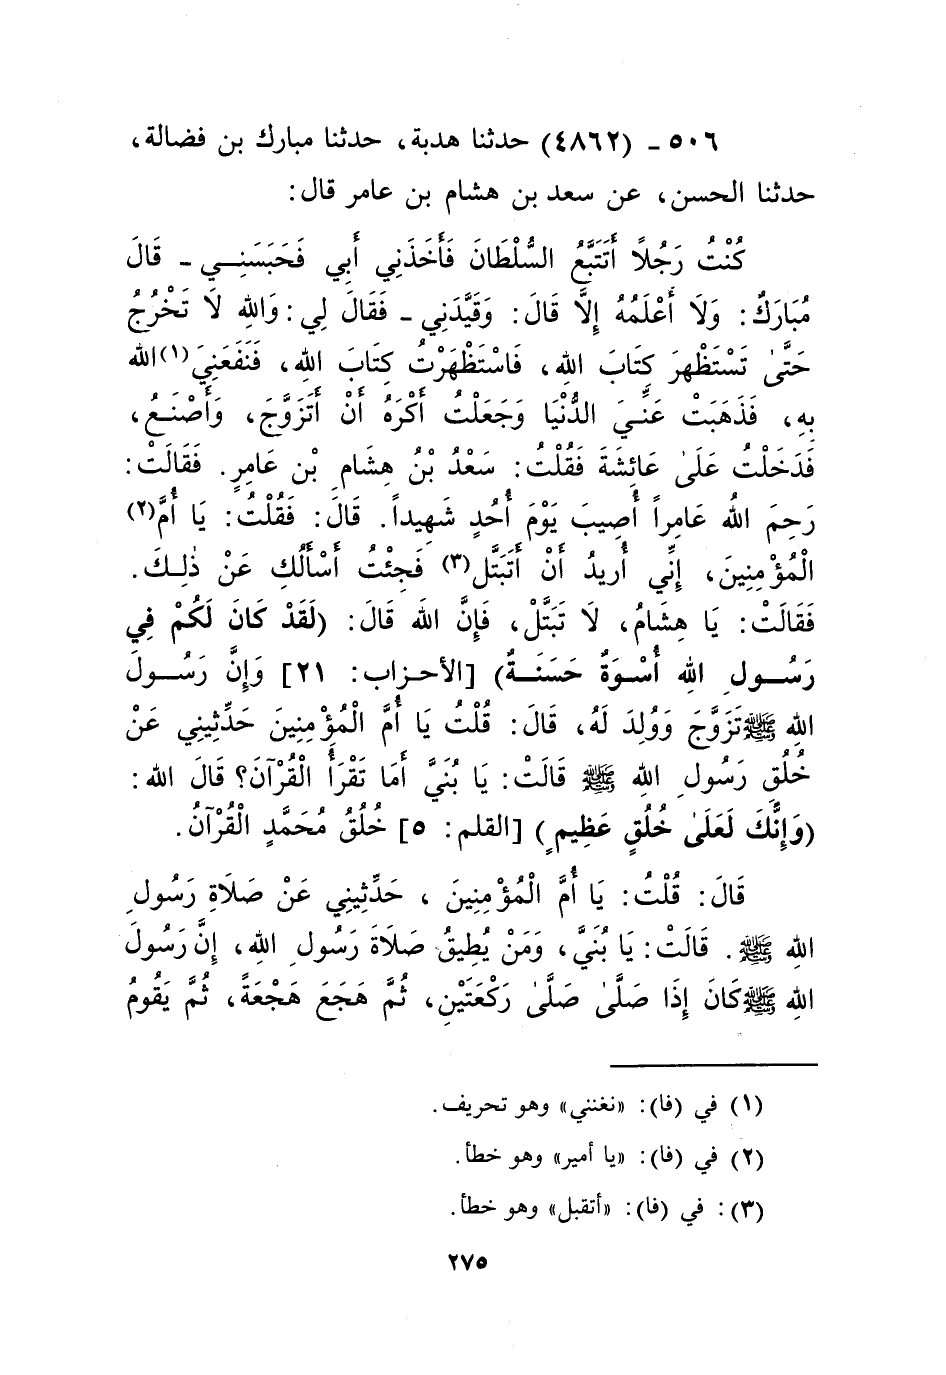 ٥٠٦ - (٤٨٦٢) حدثنا هدبة، حدثنا مبارك بن فضالة،
حدثنا الحسن، عن سعد بن هشام بن عامر قال:
كُنْتُ رَجُلاً أَتَتَبَّعُ السُّلْطَانَ فَأَخَذَنِي أَبِي فَحَبَسَنِي - قَالَ
مُبَارَكٌ: وَلَا أَعْلَمُهُ إِلَّا قَالَ: وَقَيَّدَنِي - فَقَالَ لِي: وَاللهِ لَا تَخْرُجُ
حَتَّىٰ تَسْتَظْهِرَ كِتَابَ اللهِ، فَاسْتَظْهَرْتُ كِتَابَ اللهِ، فَنَفَعَنِيَ(١) الله
بِهِ، فَذَهَبَتْ عَنِّيَ الدُّنْيَا وَجَعَلْتُ أَكْرَهُ أَنْ أَتَزَوَّجَ، وَأَصْنَعُ،
فَدَخَلْتُ عَلَىٰ عَائِشَةَ فَقُلْتُ: سَعْدُ بْنُ هِشَامِ بْنِ عَامِرٍ. فَقَالَتْ:
رَحِمَ اللهُ عَامِراً أُصِيبَ يَوْمَ أُحُدٍ شَهِيداً. قَالَ: فَقُلْتُ: يَا أُمَّ(٢)
الْمُؤْمِنِينَ، إِنِّي أُرِيدُ أَنْ أَتَبَتَّل(٣) فَجِئْتُ أَسْأَلُكِ عَنْ ذٰلِكَ.
فَقَالَتْ: يَا هِشَامُ، لَا تَبَتَّلْ، فَإِنَّ اللهَ قَالَ: (لَقَدْ كَانَ لَكُمْ فِي
رَسُولِ اللهِ أُسْوَةٌ حَسَنَةٌ) [الأحزاب: ٢١] وَإِنَّ رَسُولَ
اللهِ ﷺ تَزَوَّجَ وَوُلِدَ لَهُ، قَالَ: قُلْتُ يَا أُمَّ الْمُؤْمِنِينَ حَدِّثِينِي عَنْ
خُلُقِ رَسُولِ اللهِ ﷺ قَالَتْ: يَا بُنَيَّ أَمَا تَقْرَأُ الْقُرْآنَ؟ قَالَ الله:
(وَإِنَّكَ لَعَلَىٰ خُلُقٍ عَظِيمٍ) [القلم: ٥] خُلُقُ مُحَمَّدٍ الْقُرْآنُ.
قَالَ: قُلْتُ: يَا أُمَّ الْمُؤْمِنِينَ ، حَدِّثِينِي عَنْ صَلَاةِ رَسُولِ
اللهِ ﷺ. قَالَتْ: يَا بُنَيَّ، وَمَنْ يُطِيقُ صَلَاةَ رَسُولِ اللهِ، إِنَّ رَسُولَ
اللهِ ﷺ كَانَ إِذَا صَلَّىٰ صَلَّىٰ رَكْعَتَيْنِ، ثُمَّ هَجَعَ هَجْعَةً، ثُمَّ يَقُومُ
(١) في (فا): «نغنني» وهو تحريف.
(٢) في (فا): «يا أمير» وهو خطأ.
(٣): في (فا): «أتقبل» وهو خطأ.
٢٧٥